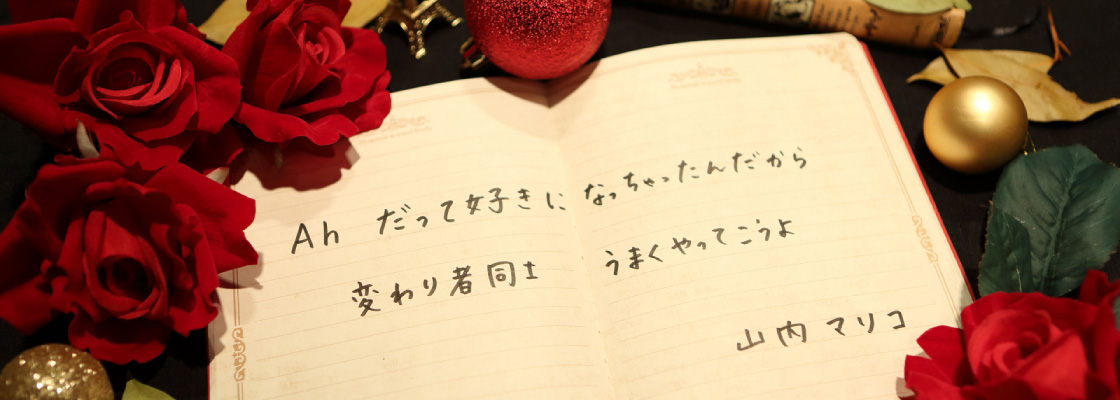 Ah だって好きに なっちゃったんだから
変わり者同士 うまくやってこうよ
山内マリコ